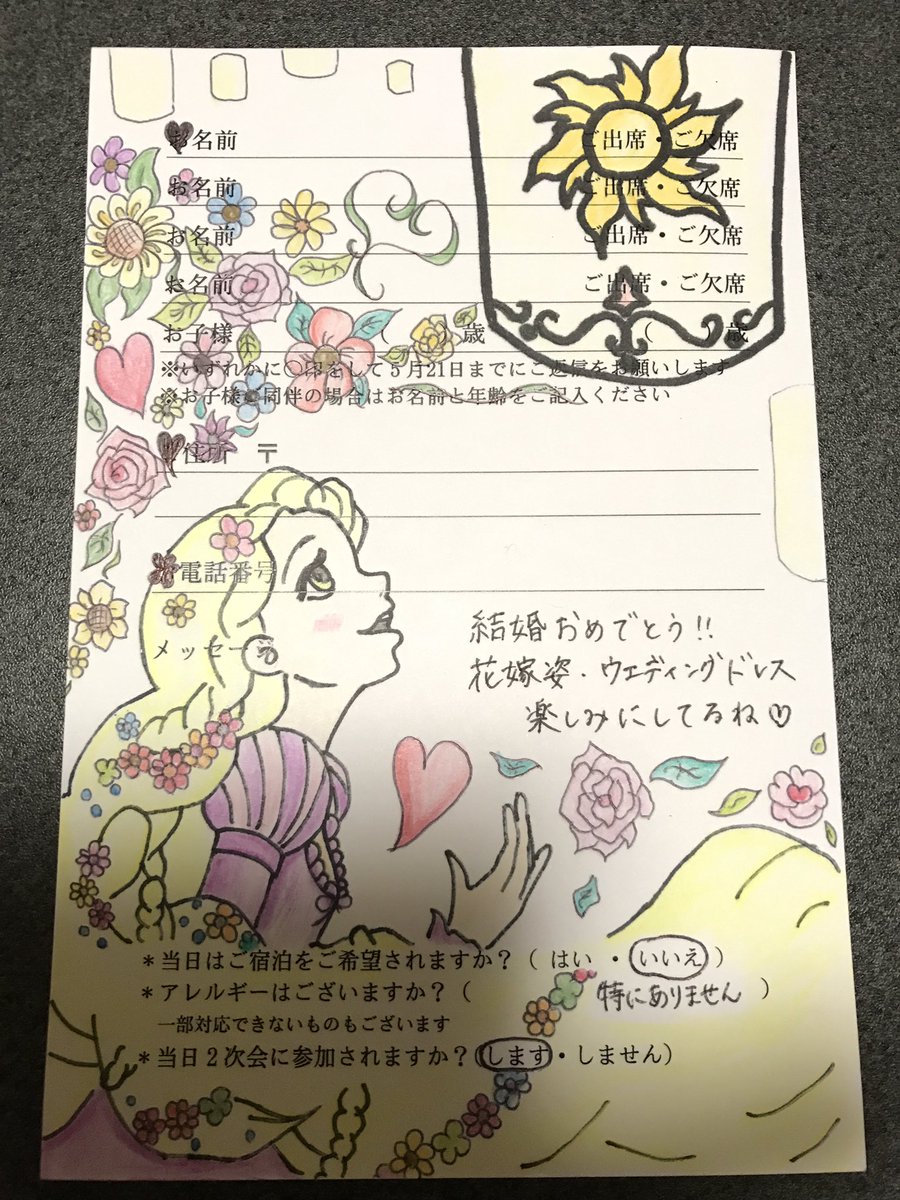 お名前 ご出席・ご欠席
お名前 ご出席・ご欠席
お名前 ご出席・ご欠席
お名前 ご出席・ご欠席
お子様 ( )歳 ( )歳
※いずれかに○印をして5月21日までにご返信をお願いします
※お子様ご同伴の場合はお名前と年齢をご記入ください
住所 〒
電話番号
メッセージ
結婚おめでとう!!
花嫁姿・ウエディングドレス
楽しみにしてるね♡
*当日はご宿泊をご希望されますか?( はい ・ いいえ )
*アレルギーはございますか?( 特にありません )
一部対応できないものもございます
*当日2次会に参加されますか?(します・しません)